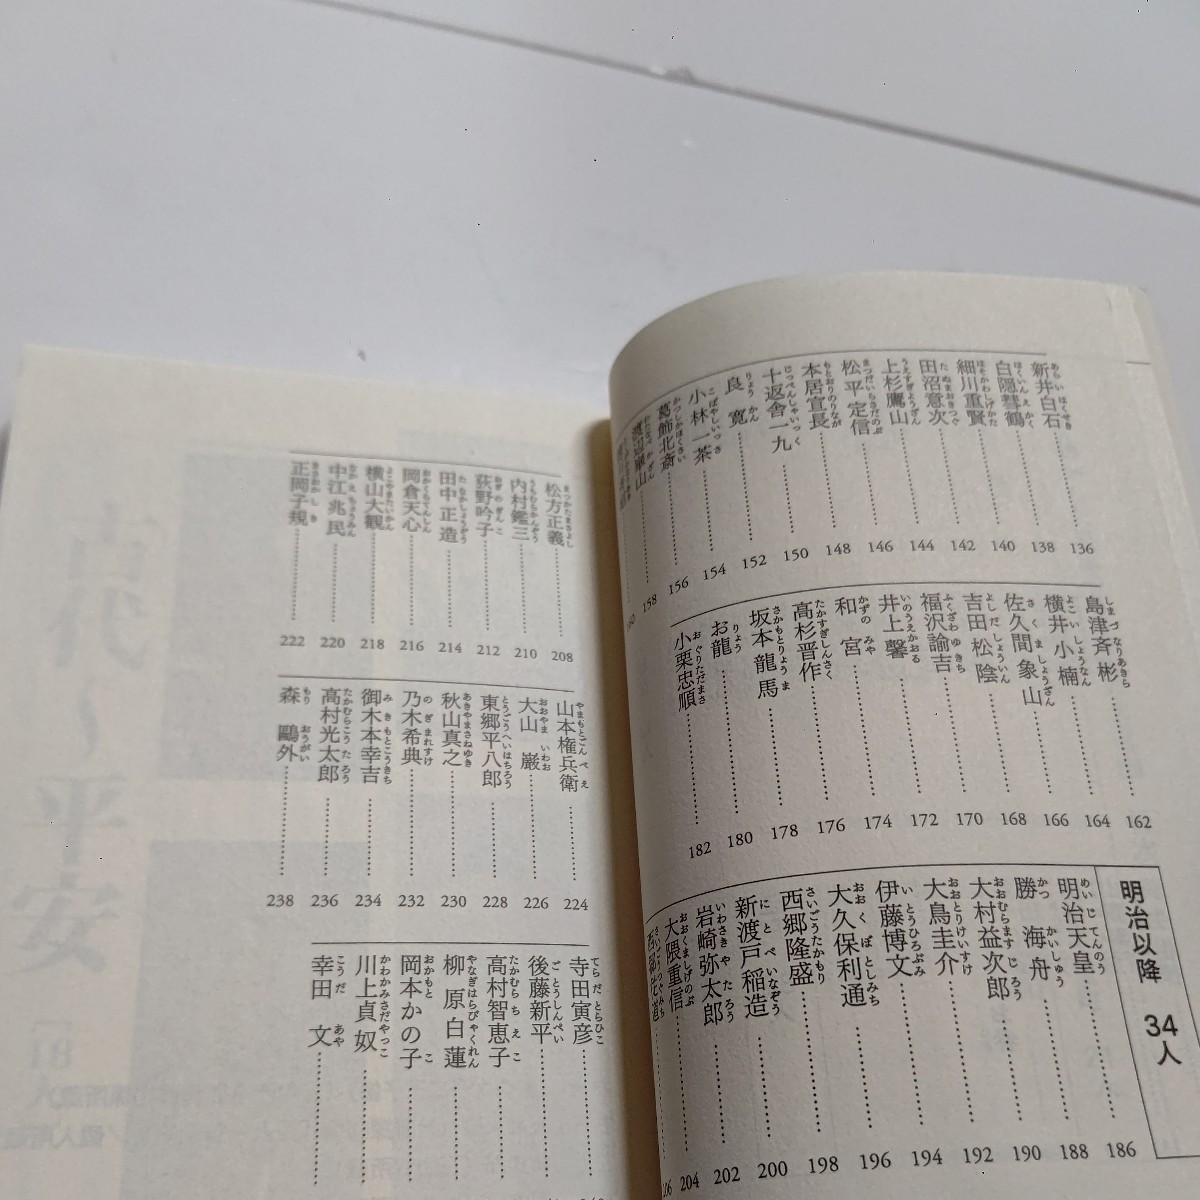 新井白石 138
白隠慧鶴 140
細川重賢 142
田沼意次 144
上杉鷹山 146
松平定信 148
本居宣長 150
十返舎一九 152
良寛 154
小林一茶 156
葛飾北斎 158
渡辺崋山 160
島津斉彬 162
横井小楠 164
佐久間象山 166
吉田松陰 168
福沢諭吉 170
井上馨 172
和宮 174
高杉晋作 176
坂本龍馬 178
お龍 180
小栗忠順 182
明治以降 34人
明治天皇 186
勝海舟 188
大村益次郎 190
大鳥圭介 192
伊藤博文 194
大久保利通 196
西郷隆盛 198
新渡戸稲造 200
岩崎弥太郎 202
大隈重信 204
西郷従道 206
松方正義 208
内村鑑三 210
荻野吟子 212
田中正造 214
岡倉天心 216
横山大観 218
中江兆民 220
正岡子規 222
山本権兵衛 224
大山巌 226
東郷平八郎 228
秋山真之 230
乃木希典 232
御木本幸吉 234
高村光太郎 236
森鷗外 238
寺田寅彦
後藤新平
高村智恵子
柳原白蓮
岡本かの子
川上貞奴
幸田文